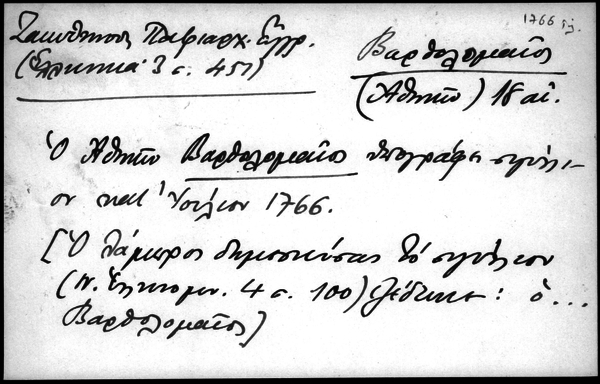 1766 
Ζακυθηνος Πατριαρχ. Εγγρ.
(Ελληνικά 3 σ. 451)
Βαρθολομαῖος
(Ἀθηνῶν) 18 αἰ.
Ὁ Ἀθηνῶν Βαρθολομαῖος ὑπογράφει σιγίλλι-
ον κατ' Ἰούλιον 1766.
[Ὁ Λάμπρος δημοσιεύσας τό σιγίλλιον
(Ν. Ἑλληνομν. 4 σ. 100) ἐξέδωκε: ὁ ...
Βαρθολομαῖος]